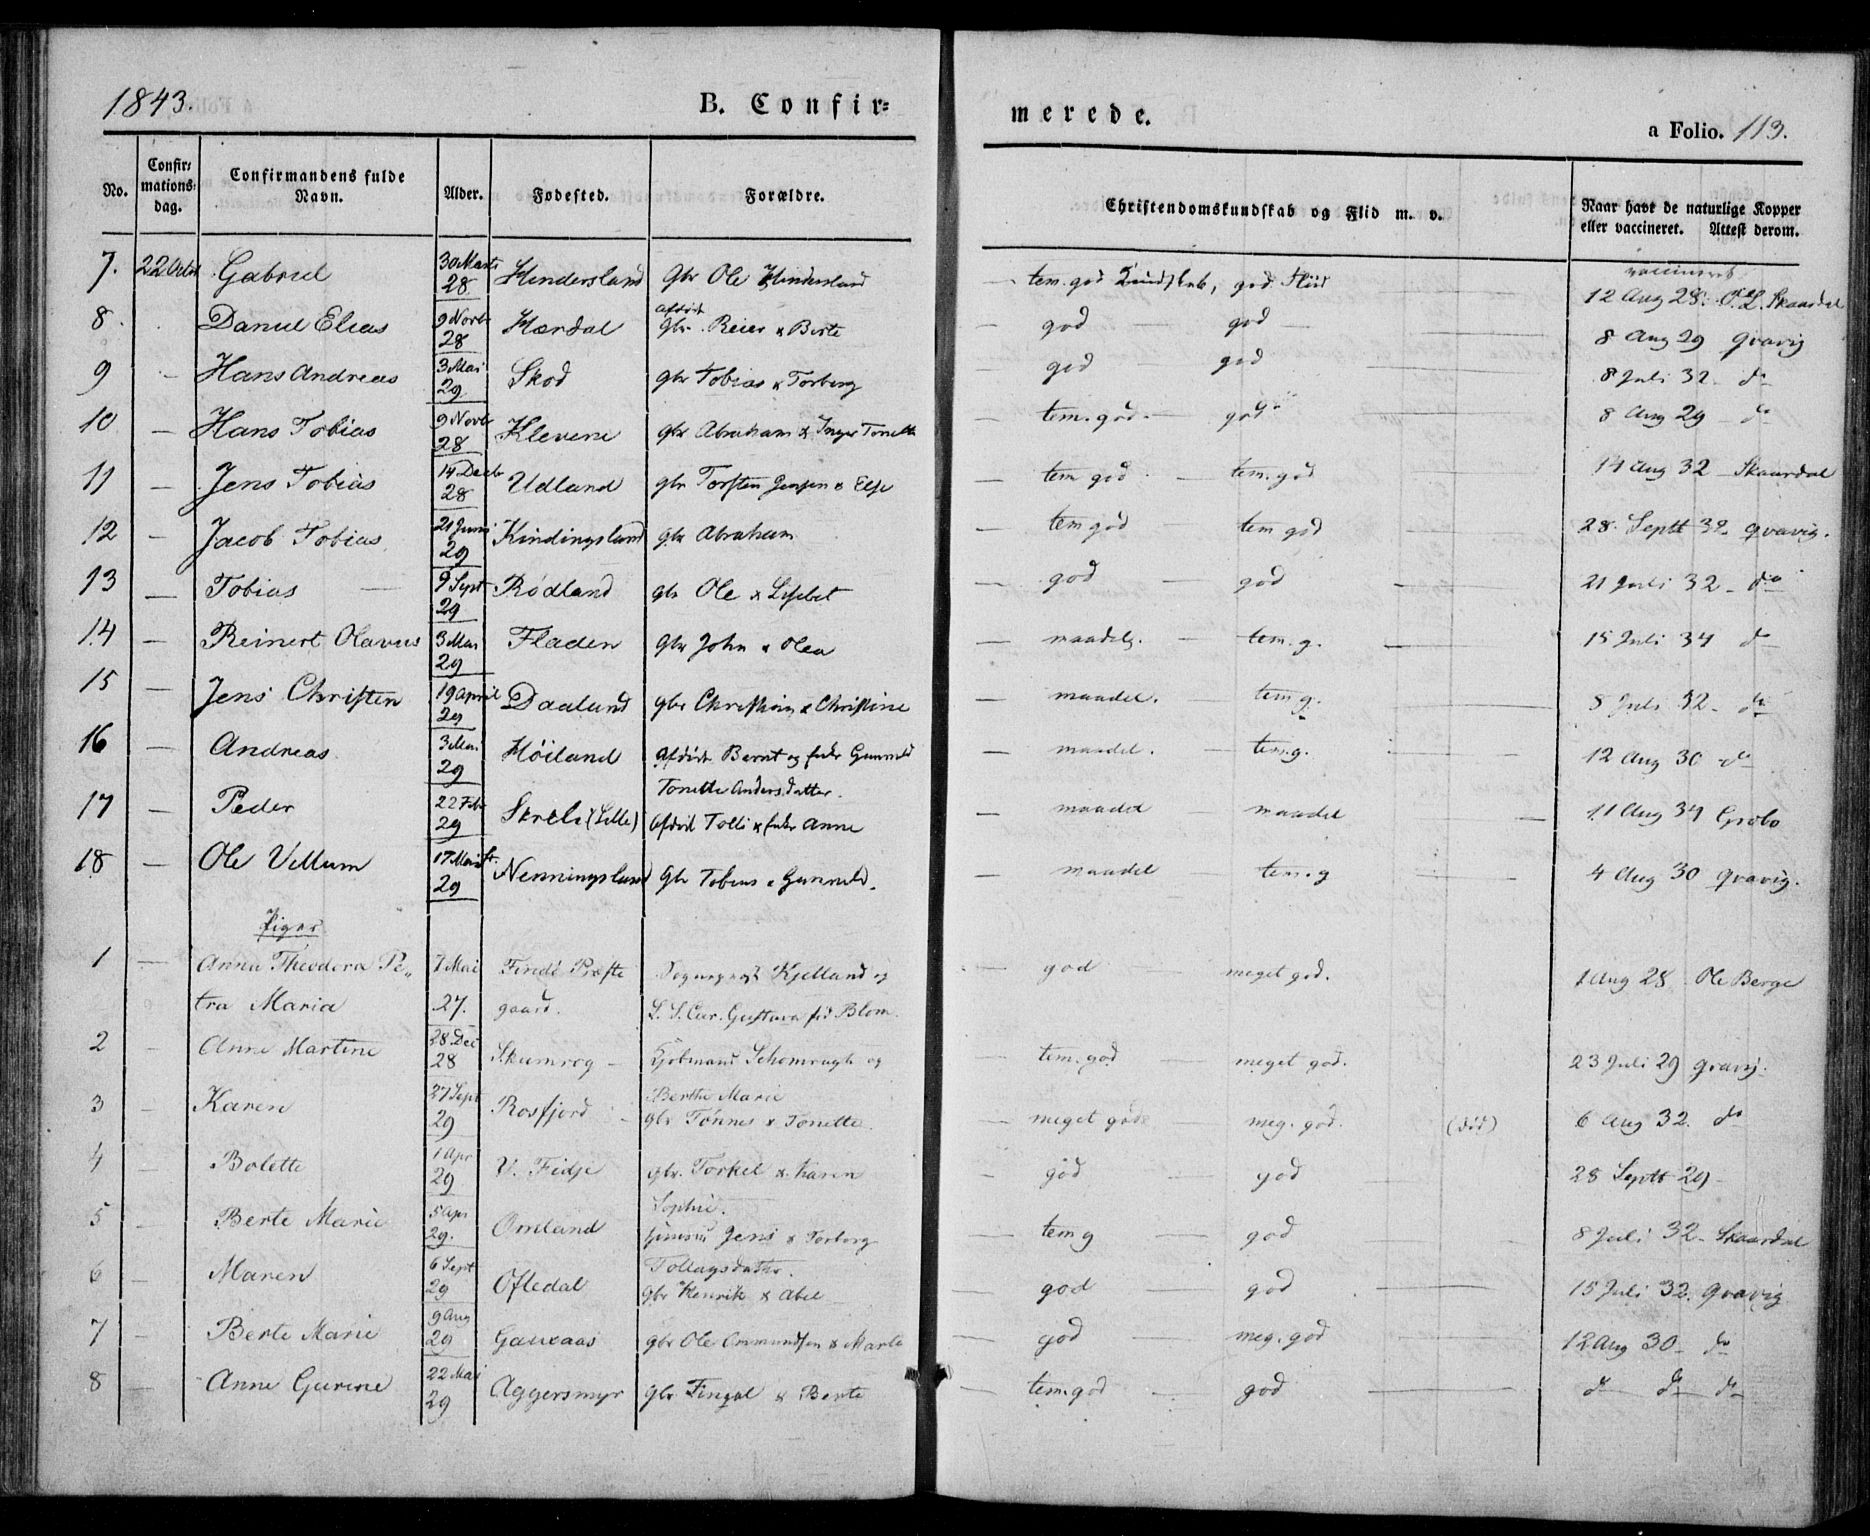 1843. B. Confir= merede. a Folio. 113.
No. Confirmations= dag. Confirmandens fulde Navn. Alder. Fødested. Forældre. Christendomskundskab og Flid m. v. Naar havt de naturlige Kopper eller vaccineret. Attest derom.
vaccineret
7. 22 Octbr Gabriel 30 Marts 28 Hindersland Gbr Ole Hindersland — tem. god Kundskab, god Fliid 12 Aug 28. Skaardal
8. Daniel Elias 9 Novbr 28 Hærdal afdøde gbr. Reier & Berte — god — god — 8 Aug 29 Qvavig
9 — Hans Andreas 3 Mai 29 Skod gbr Tobias & Torborg — god god 8 Juli 32 — do
10 — Hans Tobias 9 Novbr 28 Klevene gbr Abraham & Inger Tonette — tem. god — god 8 Aug 29 — do
11 — Jens Tobias 14 Decbr 28 Udland gbr Torsten Jensen & Else — tem god — tem. god 14 Aug 32 — Skaardal
12 — Jacob Tobias 21 Juni 29 Kindingsland gbr Abraham — tem god tem god 28. Septt 32 Qvavig.
13 — Tobias — 9 Sept 29 Rødland gbr Ole & Lisbet — god — god — 21 Juli 32 — do
14 — Reinert Olavus 3 Mai 29 Fladen gbr John & Olea — maadelg. — tem. g. — 15 Juli 34 do
15 — Jens Christen 19 April 29 Daaland gbr Christian & Christine — maadel. — tem g. 8 Juli 32 — do
16 — Andreas 3 Mai 29 Høiland afdøde Bernt og Gunvald — maadel. — tem. g. 12 Aug 30 do
Tonette Andersdatter.
17 — Peder 22 Feb 29 Skreli (Lille) afdød Tolli & Anne — maadel — maadel — 11 Aug 34 Grobo
18 — Ole Villum 17 Marts 29 Nenningsland Gbr Tobias & Gunvald. — maadel — tem. g 4 Aug 30 Qvavig.
Piger
1 — Anna Theodora Pe„ 7 Mai Findø Præste Sognepræst Kjelland og — god — meget god. 1 Aug 28 Ole Berge
tra Maria 27. gaard. Gustava Blom.
2 — Anne Martine 28. Dec 28 Skumrog — Kjøbmand Schomragh og — tem. god — meget god. 23 Juli 29 Qvavig.
Berthe Marie
3 — Karen 27 Sept 29 Rosfjord — gbr Tønnes & Tonette. — meget god — meg. god. (død) 6 Aug 32. do
4 — Bolette 1 Apr 29 V. Fidje gbr. Torkel & Karen — god — god 28 Septt 29 —
Sophie.
5 — Berte Marie 5 Apr 29. Omland Jens & Torborg — tem g — god 8 Juli 32 — Skaardal
Tollagsdatter.
6 — Maren 6 Sept 29 Ofledal gbr Henrik & Abel — god — god 15 Juli 32. Qvavig
7 — Berte Marie 9 Aug 29 Gauxaas gbr Ole Ommundsen & Marte — god meg. god 12 Aug 30 — do
8 — Anne Gurine 22 Mai 29 Aggersmyr gbr Fingal & Berte — tem. god — god — do — do — do